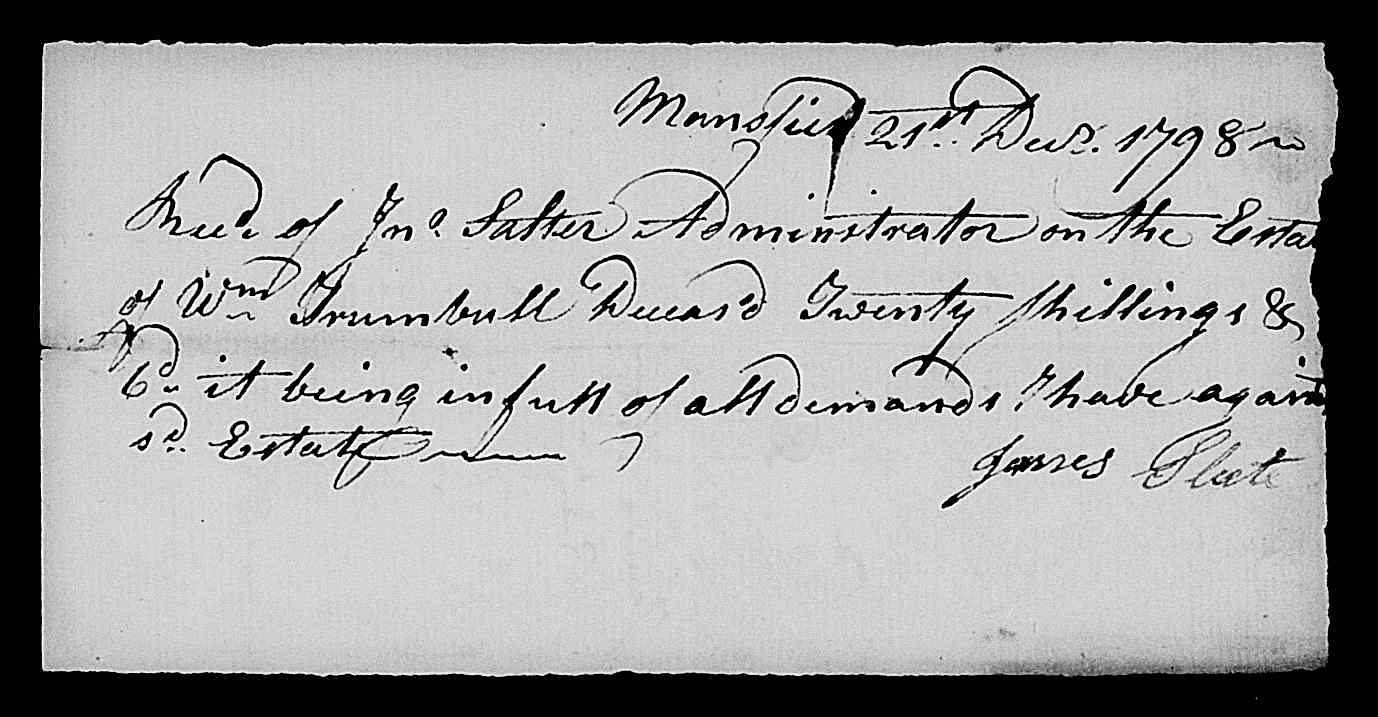 Mansfield 21st Decr. 1798
Recd. of Jno. Salter Administrator on the Esta
of Wm Trumbull Deceas'd Twenty shillings &
6d. it being in full of all demands I have against
sd. Estate
James Slate